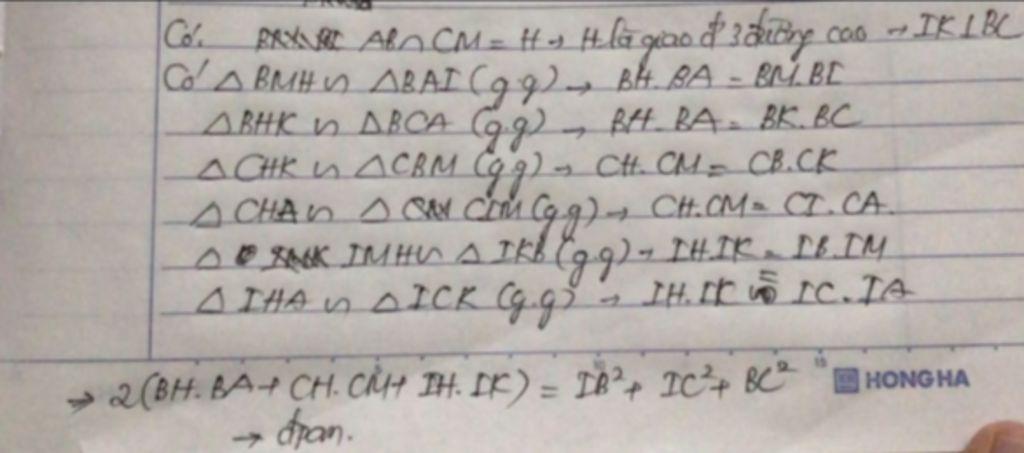 Có. AB∩CM = H → H là giao đ' 3 đường cao → IK⊥BC
Có △BMH ∽ △BAI (g.g) → BH.BA = BM.BI
△BHK ∽ △BCA (g.g) → BH.BA = BK.BC
△CHK ∽ △CBM (g.g) → CH.CM = CB.CK
△CHA ∽ △CIM (g.g) → CH.CM = CI.CA.
△IMH ∽ △IKB (g.g) → IH.IK = IB.IM
△IHA ∽ △ICK (g.g) → IH.IK = IC.IA
→ 2(BH.BA + CH.CM + IH.IK) = IB² + IC² + BC²
HONG HA
→ đpcm.